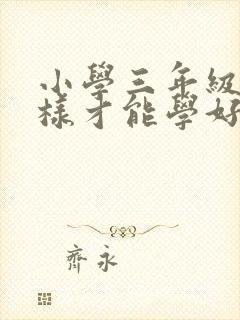 小學三年級
樣才能學好
齊永